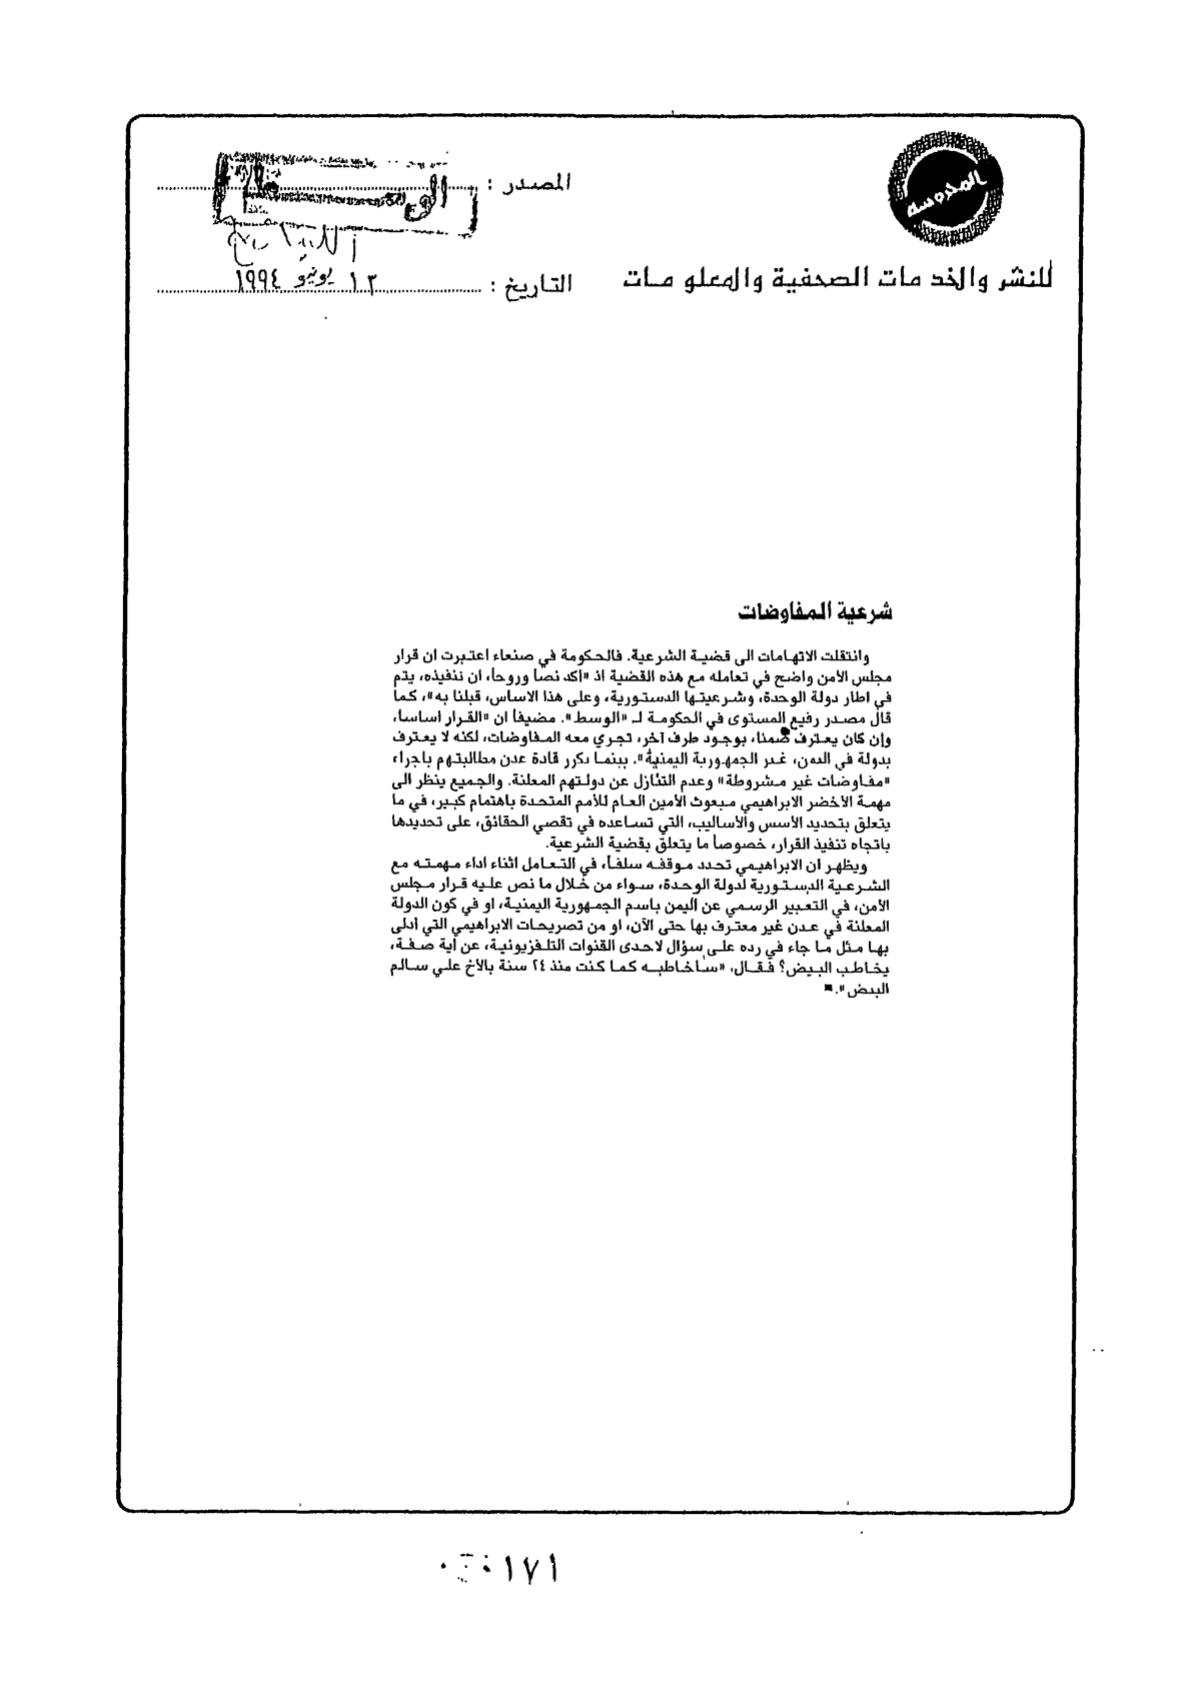 المحروسة
المصدر :
للنشر والخد مات الصحفية والمعلو مات
التاريخ : ١٣ يونيو ١٩٩٤
شرعية المفاوضات
وانتقلت الاتهامات الى قضية الشرعية. فالحكومة في صنعاء اعتبرت ان قرار
مجلس الأمن واضح في تعامله مع هذه القضية اذ «اكد نصاً وروحاً، ان تنفيذه، يتم
في اطار دولة الوحدة، وشرعيتها الدستورية، وعلى هذا الاساس، قبلنا به»، كما
قال مصدر رفيع المستوى في الحكومة لـ «الوسط». مضيفاً ان «القرار اساساً،
وإن كان يعترف ضمناً، بوجود طرف آخر، تجري معه المفاوضات، لكنه لا يعترف
بدولة في اليمن، غير الجمهورية اليمنية». بينما يكرر قادة عدن مطالبتهم باجراء
«مفاوضات غير مشروطة» وعدم التنازل عن دولتهم المعلنة. والجميع ينظر الى
مهمة الأخضر الابراهيمي مبعوث الأمين العام للأمم المتحدة باهتمام كبير، في ما
يتعلق بتحديد الأسس والأساليب، التي تساعده في تقصي الحقائق، على تحديدها
باتجاه تنفيذ القرار، خصوصاً ما يتعلق بقضية الشرعية.
ويظهر ان الابراهيمي تحدد موقفه سلفاً، في التعامل اثناء اداء مهمته مع
الشرعية الدستورية لدولة الوحدة، سواء من خلال ما نص عليه قرار مجلس
الأمن، في التعبير الرسمي عن اليمن باسم الجمهورية اليمنية، او في كون الدولة
المعلنة في عدن غير معترف بها حتى الآن، او من تصريحات الابراهيمي التي أدلى
بها مثل ما جاء في رده على سؤال لاحدى القنوات التلفزيونية، عن أية صفة،
يخاطب البيض؟ فقال، «سأخاطبه كما كنت منذ ٢٤ سنة بالأخ علي سالم
البيض».
١٧١